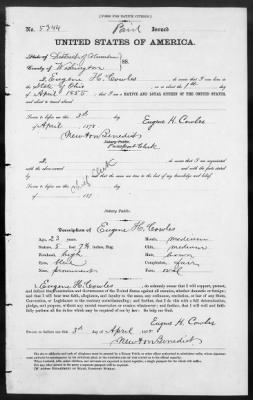 [FORM FOR NATIVE CITIZEN.]
No. 5344 Paid Issued
UNITED STATES OF AMERICA.
State of District of Columbia
County of Washington } SS.
I, Eugene H. Cowles do swear that I was born in
State of Ohio on or about the 1st day
of April 1855; that I am a NATIVE AND LOYAL CITIZEN OF THE UNITED STATES,
and about to travel abroad.
Sworn to before me, this 3d day
of April 1878 Eugene H. Cowles
Newton Benedict
Notary Public.
Passport Clerk
I, do swear that I am acquainted
with the above-named and with the facts
above stated by him, and that the same are true to the best of my knowledge and belief.
Sworn to before me, this day
of 187
Chief Clerk
Notary Public.
Description of Eugene H. Cowles
Age, 23 years. Mouth, medium
Stature, 5 feet 7¾ inches, Eng. Chin, medium
Forehead, high Hair, brown
Eyes, blue Complexion, fair
Nose, prominent Face, oval
I, Eugene H. Cowles, do solemnly swear that I will support, protect,
and defend the Constitution and Government of the United States against all enemies, whether domestic or foreign;
and that I will bear true faith, allegiance, and loyalty to the same, any ordinance, resolution, or law of any State,
Convention, or Legislature to the contrary notwithstanding; and further, that I do this with a full determination,
pledge, and purpose, without any mental reservation or evasion whatsoever; and further, that I will well and faithfully
perform all the duties which may be required of me by law. So help me God.
Eugene H. Cowles
Sworn to before me, this 3d day of April 1878
Newton Benedict